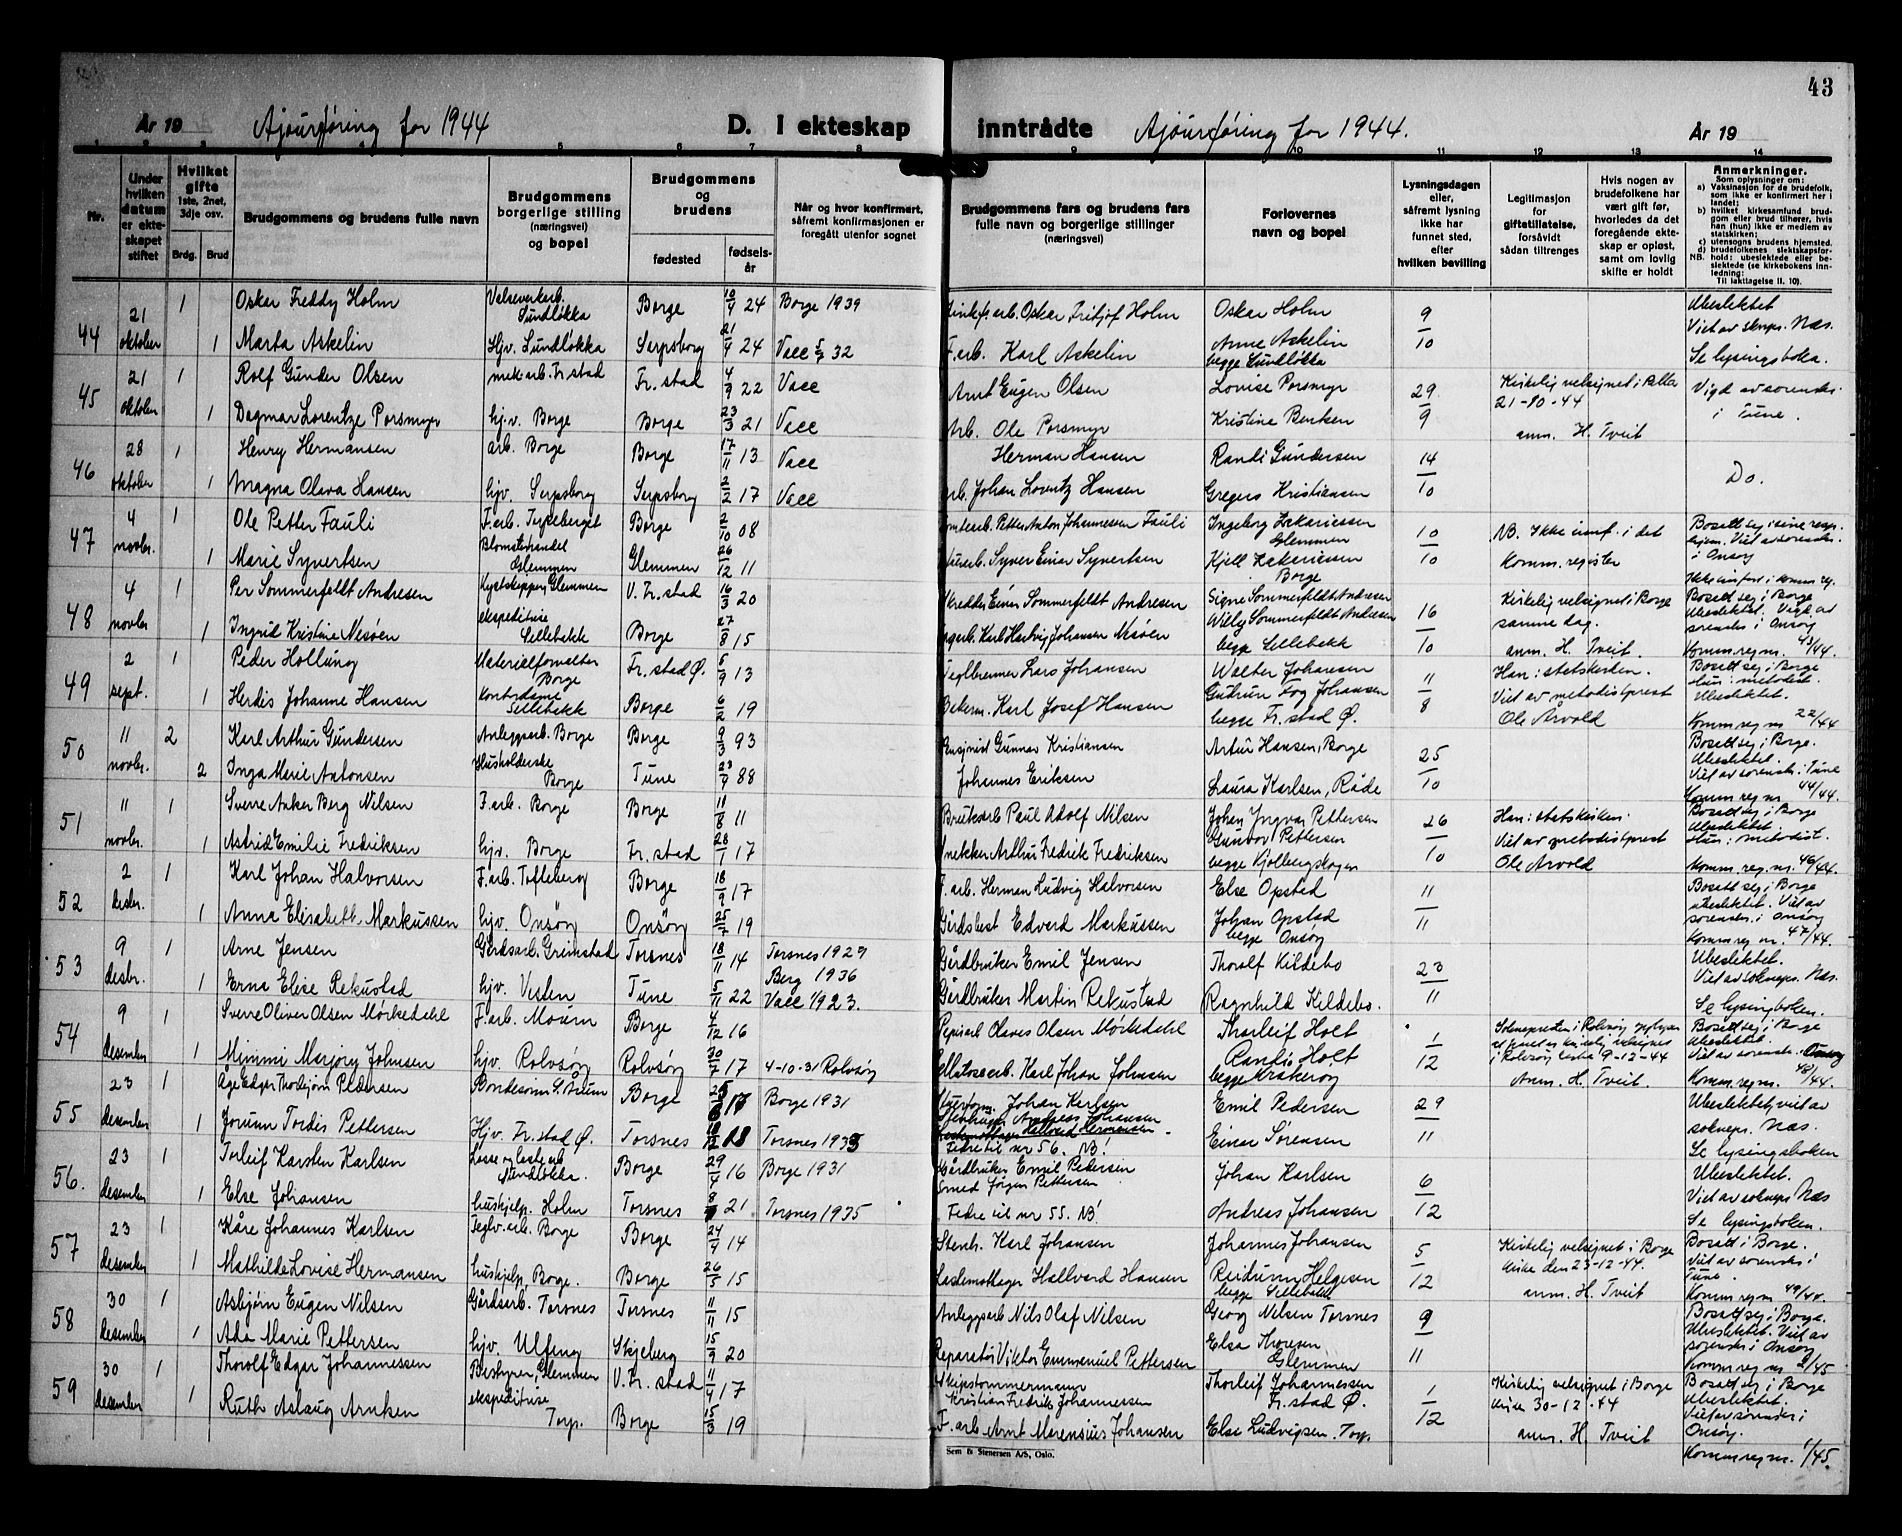 43
År 19
Ajourføring for 1944
D. I ekteskap inntrådte
Ajourføring for 1944.
År 19
1 2 3 4 5 6 7 8 9 10 11 12 13 14
Nr.
Under hvilken datum er ekteskapet stiftet
Hvilket gifte 1ste, 2net, 3dje osv.
Brdg.
Brud
Brudgommens og brudens fulle navn
Brudgommens borgerlige stilling (næringsvei) og bopel
Brudgommens og brudens
fødested
fødselsår
Når og hvor konfirmert, såfremt konfirmasjonen er foregått utenfor sognet
Brudgommens fars og brudens fars fulle navn og borgerlige stillinger (næringsvei)
Forlovernes navn og bopel
Lysningsdagen eller, såfremt lysning ikke har funnet sted, efter hvilken bevilling
Legitimasjon for giftetillatelse, forsåvidt sådan tiltrenges
Hvis nogen av brudefolkene har vært gift før, hvorledes da det foregående ekteskap er opløst, samt om lovlig skifte er holdt
Anmerkninger.
Som oplysninger om:
a) Vaksinasjon for de brudefolk, som ikke er konfirmert her i landet;
b) hvilket kirkesamfund brudgom eller brud tilhører, hvis han (hun) ikke er medlem av statskirken;
c) utensogns brudens hjemsted.
d) brudefolkenes slektskapsforhold: ubeslektede eller beslektede (se kirkebokens innledning:
NB.
Til iakttagelse II. 10).
44 21 oktober 1 Oskar Freddy Holm Valseverkarb. Sundløkka Borge 10/4 24 Borge 1939 Oskar Fritjof Holm Oskar Holm 9/10 Ubeslektet Viet av sknpr. Næs.
1 Marta Askelin Hjv. Sundløkka Sarpsborg 21/4 24 Vacc 32 F.arb. Karl Askelin Anne Askelin begge Sundløkka Se lysingsboka.
45 21 oktober 1 Rolf Gunder Olsen mek.arb. Fr.stad Fr.stad 4/9 22 Vacc Arnt Eugen Olsen Lovise Porsmyr 29/9 Kirkelig velsignet i 21-10-44 Vigd av sorenskr. i Tune.
1 Dagmar Lorentze Porsmyr hjv. Borge Borge 23/3 21 Vacc Arb. Ole Porsmyr Kristine Benken anm. H. Tveit
46 28 oktober 1 Henry Hermansen arb. Borge Borge 17/11 13 Vacc Herman Hansen Randi Gundersen 14/10 Do.
1 Magna Olava Hansen hjv. Sarpsborg Sarpsborg 2/2 17 Vacc Arb. Johan Lorentz Hansen Gregers Kristiansen
47 4 novbr. 1 Ole Petter Fauli F.arb. Torpeberget Borge 2/10 08 Petter Anton Johannessen Fauli Ingeborg Zakariassen Glemmen 10/10 NB. Ikke innf. i det Komm. register Bosatt sej i sine resp. hjem. Viet av sorenskr. i Onsøy
1 Marie Syvertsen Blomsterhandel Glemmen Glemmen 26/12 11 Syver Einar Syvertsen Kjell Zakariassen Borge Ikke innført i komm.reg.
48 4 novbr 1 Per Sommerfeldt Andresen Kystskipper, Glemmen V. Fr.stad 16/3 20 Skredder Einar Sommerfeldt Andresen Signe Sommerfeldt Andresen Willy Sommerfeldt Andresen 16/10 Kirkelig velsignet i Borge samme dag. Bosatt sej i Borge Ubeslektet. Vigd av sorenskr i Onsøy
1 Ingrid Kristine Nesøen ekspeditrise Sellebakk Borge 27/8 15 Karl Hartvig Johansen Nesøen begge Sellebakk anm. H. Tveit. Komm.reg.nr. 43/44.
49 2 sept. 1 Peder Hollung Materialforvalter Borge Fr.stad Ø. 5/9 13 Teglbrenner Lars Johansen Walter Johansen 11/8 Han: statskirken. Bosatt sej i Borge Hun: metodist. Ubeslektet.
1 Herdis Johanne Hansen Kontordame Sellebakk Borge 6/2 19 Karl Josef Hansen Gudrun Fog Johansen begge Fr.stad Ø. Viet av metodistprest Ole Arvold Komm.reg nr 22/44
50 11 novbr. 2 Karl Arthur Gundersen Anleggsarb. Borge Borge 9/3 93 Gunnar Kristiansen Artur Hansen, Borge 25/10 Bosatt sej i Borge. Ubeslektet. Viet av sorenskr. i Tune
2 Inga Marie Antonsen Husholderske Borge Tune 23/9 88 Johannes Eriksen Laura Karlsen, Råde Komm reg nr 44/44.
51 11 novbr. 1 Sverre Anker Berg Nilsen F.arb. Borge Borge 11/8 11 Bruksarb Paul Adolf Nilsen Johan Yngvar Pettersen 26/10 Han: statskirken. Bosatt sej i Borge Ubeslektet. Hun: Metodist.
1 Astrid Emilie Fredriksen hjv. Borge Fr.stad 28/1 17 Snekker Arthur Fredrik Fredriksen Gunvor Pettersen begge Kjølbergskogen Viet av metodistprest Ole Arvold Komm.reg.nr. 46/44.
52 2 desbr. 1 Karl Johan Halvorsen F.arb. Tofteberg Borge 18/9 17 F.arb. Herman Ludvig Halvorsen Else Opstad 11/11 Bosatt sej i Borge Ubeslektet. Viet av sorenskr. i Onsøy
1 Anna Elisabeth Markussen hjv. Onsøy Onsøy 25/7 19 Gårdsbest Edvard Markussen Johan Opstad begge Onsøy Komm reg nr. 47/44.
53 9 desbr. 1 Arne Jensen Gårdsarb. Grimstad Torsnes 18/11 14 Torsnes 1929 Gårdbruker Emil Jensen Thorolf Kildebo 23/11 Ubeslektet. Viet av soknepr. Næs.
1 Erna Elise Rekustad hjv. Visten Tune 5/11 22 Berg 1936 Vacc 1923. Gårdbruker Martin Rekustad Ragnhild Kildebo. Se lysingboken.
54 9 desember 1 Sverre Oliver Olsen Mørkedahl F.arb. Moum Borge 4/12 16 Papirarb Olaves Olsen Mørkedahl Tharleif Holt 1/12 Soknepresten i Rolvsøy i Rolvsøy kirke 9-12-44 Bosatt sej i Borge Ubeslektet. Viet av sorenskr. Onsøy
1 Mimmi Marjory Johnsen hjv. Rolvsøy Rolvsøy 30/7 17 4-10-31 Rolvsøy Karl Johan Johnsen Randi Holt begge Kråkerøy Anm. H. Tveit. Komm reg nr. 48/44.
55 23 desember 1 Åge Edgar Thorbjørn Pedersen Bondesønn S. Borge 17 Borge 1931 Johan Karlsen Andreas Johansen Emil Pedersen 29/11 Ubeslektet, viet av soknepr. Næs.
1 Jorunn Tordis Pettersen Hjv. Fr.stad Ø. Torsnes 18 Torsnes 1933 Fedre til nr 56. NB! Einar Sørensen Se lysingsboken
56. 23 desember 1 Torleif Karsten Karlsen Losse og lastearb Sundløkka. Borge 29/4 16 Borge 1931 Gårdbruker Emil Pedersen Smed Jørgen Pettersen Johan Karlsen 6/12 Ubeslektet. Viet av soknepr Næs
1 Else Johansen hushjelp. Holm Torsnes 8 21 Torsnes 1935 Fedre til nr 55. NB! Andreas Johansen Se lysingboken.
57 23 desember 1 Kåre Johannes Karlsen Teglv.arb. Borge Borge 24/4 14 Stenh. Karl Johansen Johannes Johansen 5/12 Kirkelig velsignet i Borge kirke den 23-12-44. Bosatt i Borge. Viet av sorenskr i Tune.
1 Mathilde Lovise Hermansen hushjelp, Borge. Borge 26/5 15 Lastemottager Hallvard Hansen Reidunn Helgesen begge Sellebakk anm. H. Tveit Komm reg nr 49/44.
58 30 desember 1 Asbjørn Eugen Nilsen Gårdsarb. Torsnes Torsnes 11/11 15 Anleggsarb Nils Olaf Nilsen Georg Nilsen Torsnes 9/11 Bosatt sej i Borge. Ubeslektet. Viet av sorenskr i Onsøy
1 Ada Marie Pettersen hjv. Ulfeng Skjeberg 15/9 20 Reparatør Viktor Emmanuel Pettersen Elsa Thoresen Glemmen Komm reg nr 2/45
59 30 desember 1 Thorolf Edgar Johannessen Bestyrer, Glemmen V. Fr.stad 11/4 17 Skipstømmermann Kristian Fredrik Johannessen Thorleif Johannessen Fr.stad Ø. 1/12 Kirkelig velsignet i Borge kirke 30-12-44 Bosatt sej i Borge Ubeslektet Viet av sorenskr i Onsøy.
1 Ruth Aslaug Arntsen ekspeditrise Torp. Borge 15/3 19 F.arb Arnt Marensius Johansen Else Ludvigsen. Torp. anm. H. Tveit Komm reg nr. 1/45.
Sem & Stenersen A/S, Oslo.